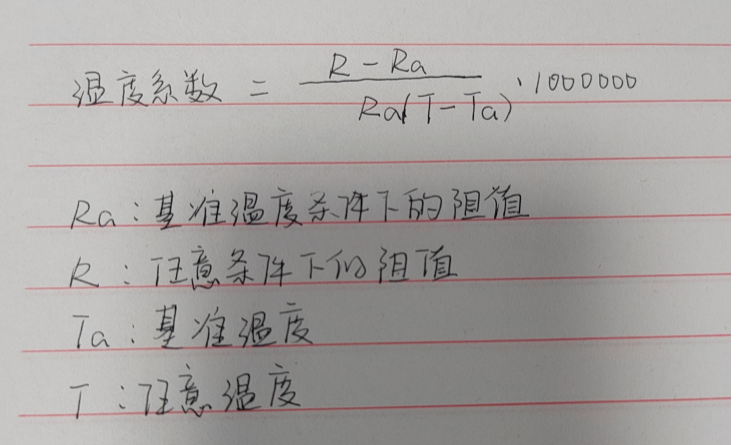 温度系数 = (R-Ra)/(Ra(T-Ta))·1000000
Ra:基准温度条件下的阻值
R:任意条件下的阻值
Ta:基准温度
T:任意温度